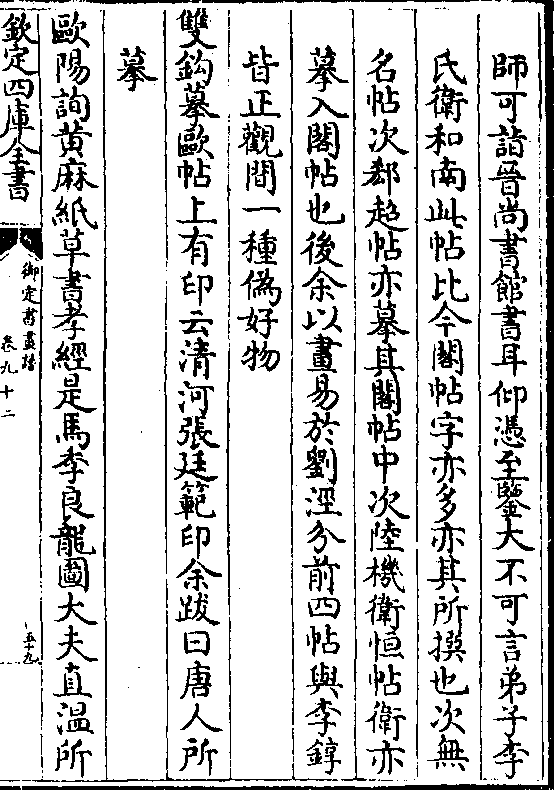 師可詣晉尚書館書耳仰憑至鑒大不可言弟子李
氏衛和南此帖比今閣帖字亦多亦其所撰也次無
名帖次郄超帖亦摹其閣帖中次陸機衛恒帖衛亦
摹入閣帖也後余以畫易於劉涇分前四帖與李錞
皆正觀間一種偽好物
雙鈎摹歐帖上有印云清河張廷範印余跋曰唐人所
摹
歐陽詢黄麻紙草書孝經是馬季良龍圖大夫直温所
欽定四庫全書
御定書畫譜
卷九十二
五十九